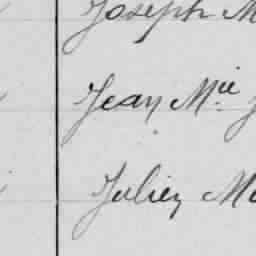 Joseph M
Jean Mie J
Julien Ma